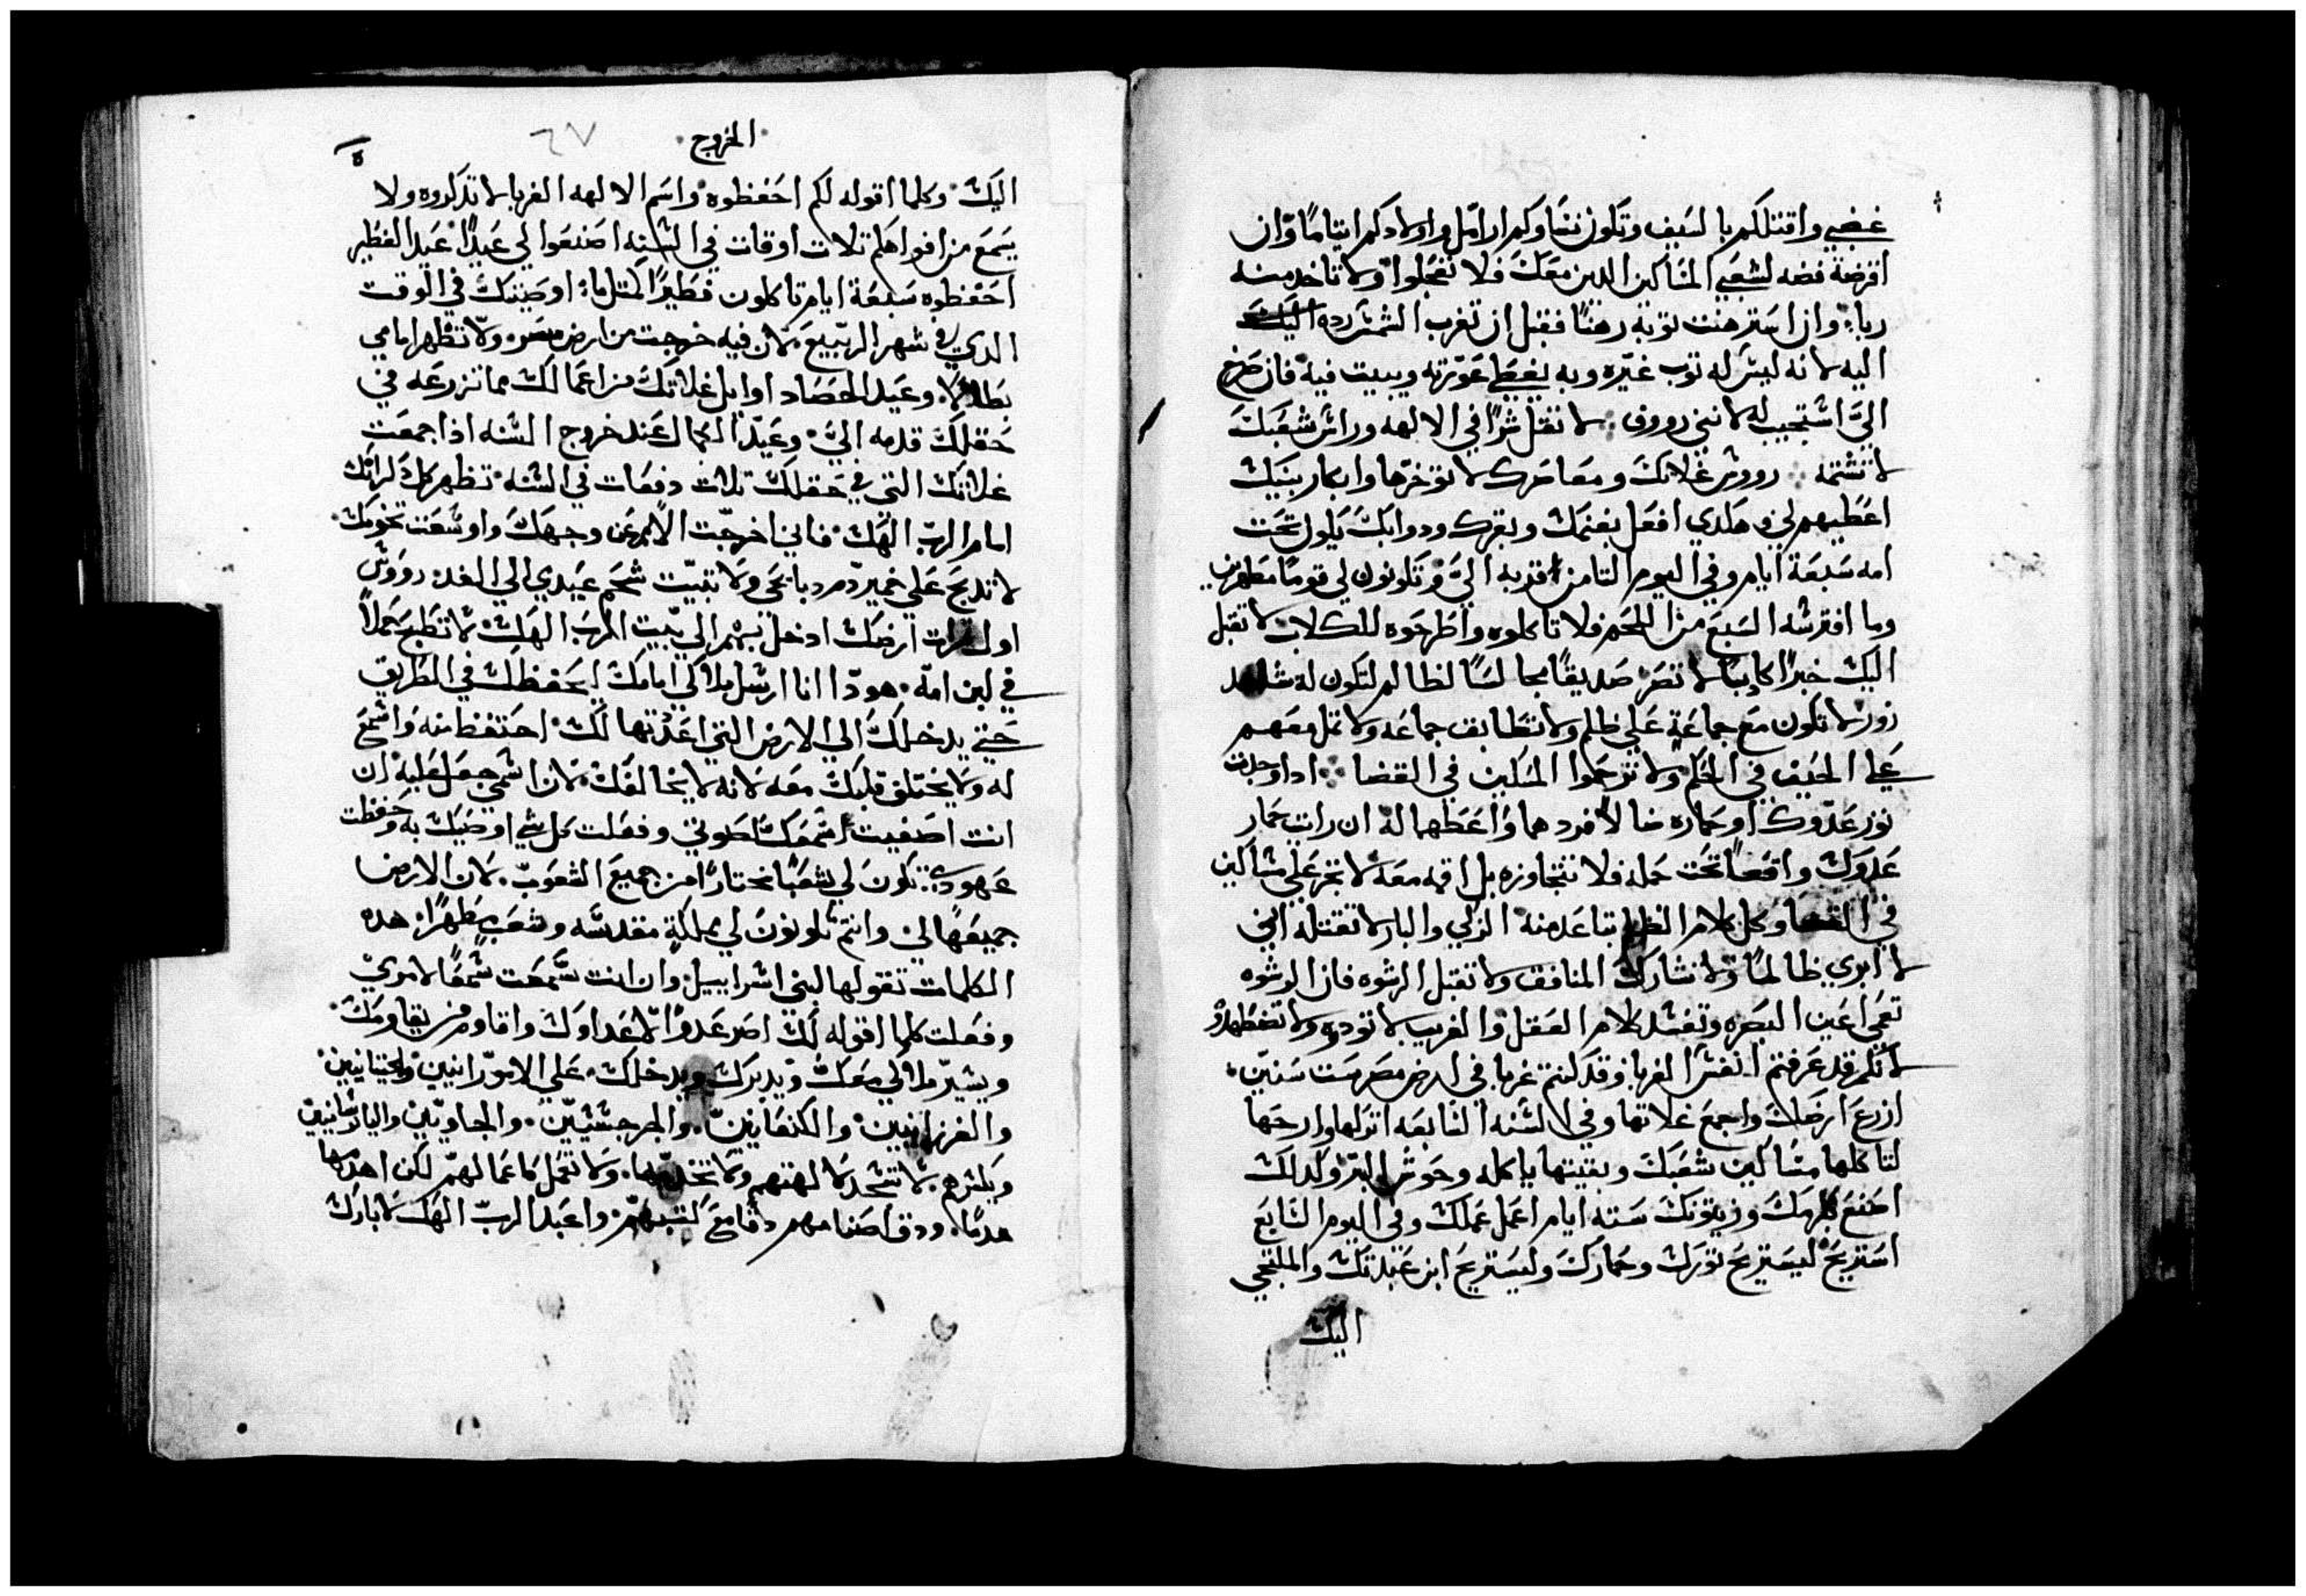 غضبي واقتلكم بالسيف وتكون نساوكم ارامل واولادكم ايتامًا وان
اقرضة فضه لشعبي المساكين الدين معك فلا تعجلوا ولا تاخد منه
ربا وان استرهنت توبه رهنًا فقبل ان تغرب الشمس رده اليك
اليه لانه ليس له توب غيره وبه يغطي عورته ويبيت فيه فان صرخ
اليّ استجيب له لانني رووف لا تقل شرًا في الالهه وراس شعبك
لا تشتمه رووش غلاتك ومعاصرك لا توخرها وابكار بنيك
اعطيهم لي هكدي افعل بغنمك وبقرك ودوابك يكون تحت
امه سبعة ايام وفي اليوم التامن قدبه اليّ وتكونون لي قومًا مطهرين
وما افترسه السبع من اللحم فلا تاكلوه واطرحوه للكلاب لا تقبل
اليك خبرًا كادبًا لا تصر صديقًا مجالسًا لظالم لتكون له شاهد
زور لا تكون مع جماعة علي ظلم ولا تطابق جماعه ولا تمل معهم
علي الحيف في الحكم ولا ترحموا المسكين في القضا ادا وجدت
تور عدوك او حماره ضالاً فردهما واعطهما له ان رايت حمار
عدوك واقعًا تحت حمله فلا تتجاوزه بل اقمه معه لا تجر علي مساكين
في القضا وكل كلام الظلم تباعد منه الزكي والبار لا تقتله اني
لا ابري ظالمًا ولا تشارك المنافق ولا تقبل الرشوه فان الرشوه
تعمي اعين البصره وتفسد كلام العقل والغريب لا توديه ولا تضطهده
لانكم قد عرفتم انفس الغربا وقد كنتم غربا في ارض مصر ست سنين
ازرع ارضك واجمع غلاتها وفي السنه السابعه اتركها وارحها
لتاكلها مساكين شعبك وبقيتها ياكله وحوش البر وكدلك
اصنع بكرمك وزيتونك سته ايام اعمل عملك وفي اليوم السابع
استريح ليستريح تورك وحمارك وليستريح ابن عبدتك والملتجي
اليك
الخروج ٦٧
اليك وكلما اقوله لكم احفظوه واسم الالهه الغربا لا تدكروه ولا
يسمع من افواهكم تلات اوقات في السنه اصنعوا لي عيدًا عيد الفطير
احفظوه سبعة ايام تاكلون فطيرًا كمتل ما اوصيتك في الوقت
الدي في شهر الربيع لان فيه خرجت من ارض مصر ولا تظهر امامي
بطالاً وعيد الحصاد اوايل غلاتك من اعمالك مما تزرعه في
حقلك قدمه اليّ وعيد الكمال عند خروج السنه ادا جمعت
غلاتك التي في حقلك تلات دفعات في السنه تظهر كل دكرانك
امام الرب الهك فاني اخرجت الامم عن وجهك واوسعت تخومك
لا تدبح علي خمير دم دبايحي ولا تبيت شحم عيدي الي الغد رووش
اول تمرات ارضك ادخل بهم الي بيت الرب الهك لا تطبخ حملاً
في لبن امه هودا انا ارسل ملاكي امامك ليحفظك في الطريق
حتي يدخلك الي الارض التي اعددتها لك احتفظ منه واسمع
له ولا يختلف قلبك معه لانه لا يخالفك لان اسمي جعل عليه ان
انت اصغيت سمعك لصوتي وفعلت كل شي اوصيك به وحفظت
عهودي تكون لي شعبًا مختارًا من جميع الشعوب لان الارض
جميعها لي وانتم تكونون لي مملكة مقدسه وشعب مطهرًا هده
الكلمات تقولها لبني اسراييل وان انت سمعت سمعًا لامري
وفعلت كلما اقوله لك اصر عدوًا لاعداوك واقاوم من يقاومك
ويسير ملاكي معك ويدبرك ويدخلك علي الاموّرانيين والحيتانيين
والفرزانيين والكنعانيين والجرجسيّين والحاويين واليابوسانيين
وبكترهم لا تسجد لالهتهم ولا تخدمها ولا تعمل كاعمالهم لكن اهدمها
هدمًا ودق اصنامهم دقا مع كتبهم واعبد الرب الهك لابارك